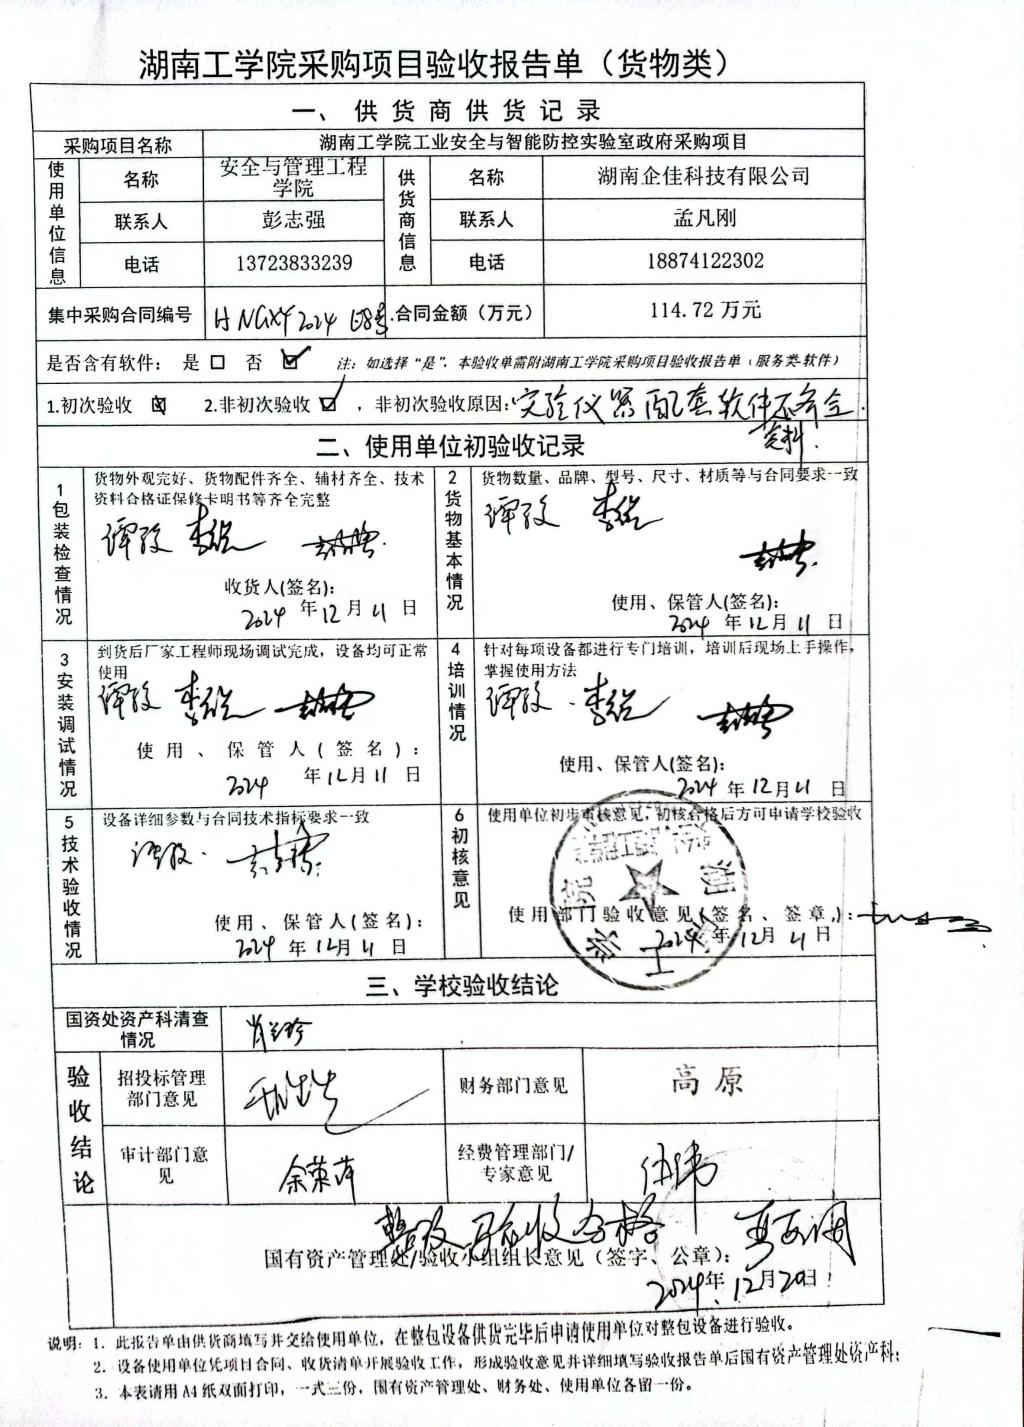 湖南工学院采购项目验收报告单（货物类）
一、供货商供货记录
采购项目名称 湖南工学院工业安全与智能防控实验室政府采购项目
使用单位信息 名称 安全与管理工程学院 供货商信息 名称 湖南企佳科技有限公司
联系人 彭志强 联系人 孟凡刚
电话 13723833239 电话 18874122302
集中采购合同编号 HNGXY2024 号 合同金额（万元） 114.72 万元
是否含有软件： 是 □ 否 ☑ 注：如选择“是”，本验收单需附湖南工学院采购项目验收报告单（服务类-软件）
1.初次验收 2.非初次验收 ☑ ，非初次验收原因：实验仪器配套软件不齐全
资料.
二、使用单位初验收记录
1包装检查情况
货物外观完好、货物配件齐全、辅材齐全、技术
资料合格证保修卡明书等齐全完整
收货人(签名):
2024 年 12 月 11 日
2货物基本情况
货物数量、品牌、型号、尺寸、材质等与合同要求一致
使用、保管人(签名):
2024 年 12 月 11 日
3安装调试情况
到货后厂家工程师现场调试完成，设备均可正常
使用
使用、保管人(签名):
2024 年 12 月 11 日
4培训情况
针对每项设备都进行专门培训，培训后现场上手操作，
掌握使用方法
使用、保管人(签名):
2024 年 12 月 11 日
5技术验收情况
设备详细参数与合同技术指标要求一致
使用、保管人(签名):
2024 年 12 月 11 日
6初核意见
使用单位初步审核意见，初核合格后方可申请学校验收
使用部门验收意见(签名、签章,):
2024 年 12 月 11 日
三、学校验收结论
国资处资产科清查情况
验收结论
招投标管理部门意见 财务部门意见 高原
审计部门意见 余荣萍 经费管理部门/专家意见 伍伟
整改 验收合格
国有资产管理处/验收小组组长意见（签字、公章）:
2024年12月20日
说明：1. 此报告单由供货商填写并交给使用单位，在整包设备供货完毕后申请使用单位对整包设备进行验收。
2. 设备使用单位凭项目合同、收货清单开展验收工作，形成验收意见并详细填写验收报告单后国有资产管理处资产科；
3. 本表请用 A4 纸双面打印，一式三份，国有资产管理处、财务处、使用单位各留一份。